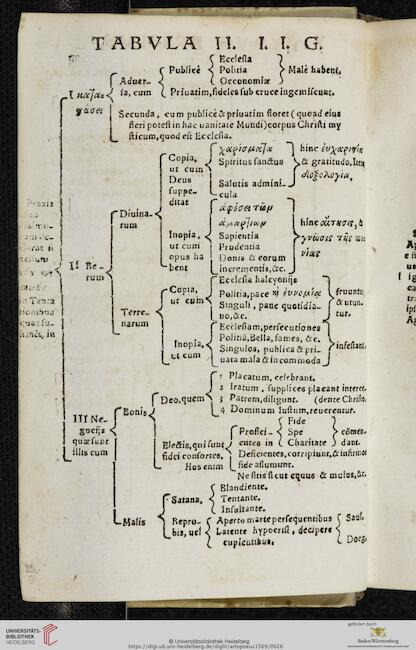 TABVLA II. I. I. G.
Ecclesia
Publicè Politia Malè habent.
Oeconomiæ
Aduer-
sa, cum
Priuatim, fideles sub cruce ingemiscunt.
I
Secunda, cum publicè & priuatim floret (quoad eius
fieri potest in hac uanitate Mundi) corpus Christi my
sticum, quod est Ecclesia.
Copia,
ut cum
Deus
suppe-
ditat
χαρίσματα
Spiritus sanctus
Salutis admini-
cula
hinc
& gratitudo, Item
δοξολογία.
Diuina-
rum
Inopia,
ut cum
opus ha
bent
ἀφέσει τῶν
Sapientia
Prudentia
Donis & eorum
incrementis, &c.
hinc αἴτησις, &
II Re-
rum
Copia,
ut cum
Ecclesia
Politia, pace
Singuli, pane quotidia-
no, &c.
fruuntu
& utun
tur.
Terre-
narum
Inopia,
ut cum
Ecclesiam, persecutiones
Politiã, Bella, fames, &c.
Singulos, publica & pri-
uata mala & incommoda
infestant.
III Ne-
quæ sunt
illis cum
Bonis
Deo, quem
1 Placatum, celebrant.
2 Iratum, supplices placant
3 Patrem, diligunt. (dente Christo,
4 Dominum Iustum, reuerentur.
Electis, qui sunt
fidei consortes,
Hos enim
Profici-
entes in
Fide
Spe
Charitate
cōmen-
dant.
Deficientes, corripiunt, &
fide assumunt.
Ne sitis sicut equus & mulus, &c.
Malis
Satana,
Blandiente.
Tentante.
Insultante.
Repro-
bis, uel
Aperto marte persequentibus
Latente hypocrisi, decipere
cupientibus,
Saul.
Doeg.
UNIVERSITÄTS-
BIBLIOTHEK
HEIDELBERG
© Universitätsbibliothek Heidelberg
https://digi.ub.uni-heidelberg.de/diglit/artopoeus1569/0026
gefördert durch
Baden-Württemberg